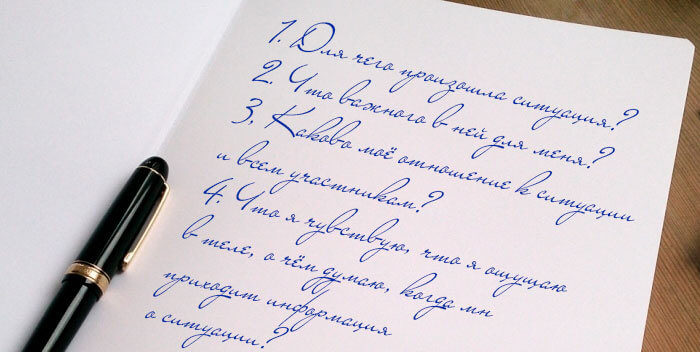 1. Для чего произошла ситуация?
2. Что важного в ней для меня?
3, Каково моё отношение к ситуации
и всем участникам?
4. Что я чувствую, что я ощущаю
в теле, о чём думаю, когда мн
приходит информация
о ситуации?